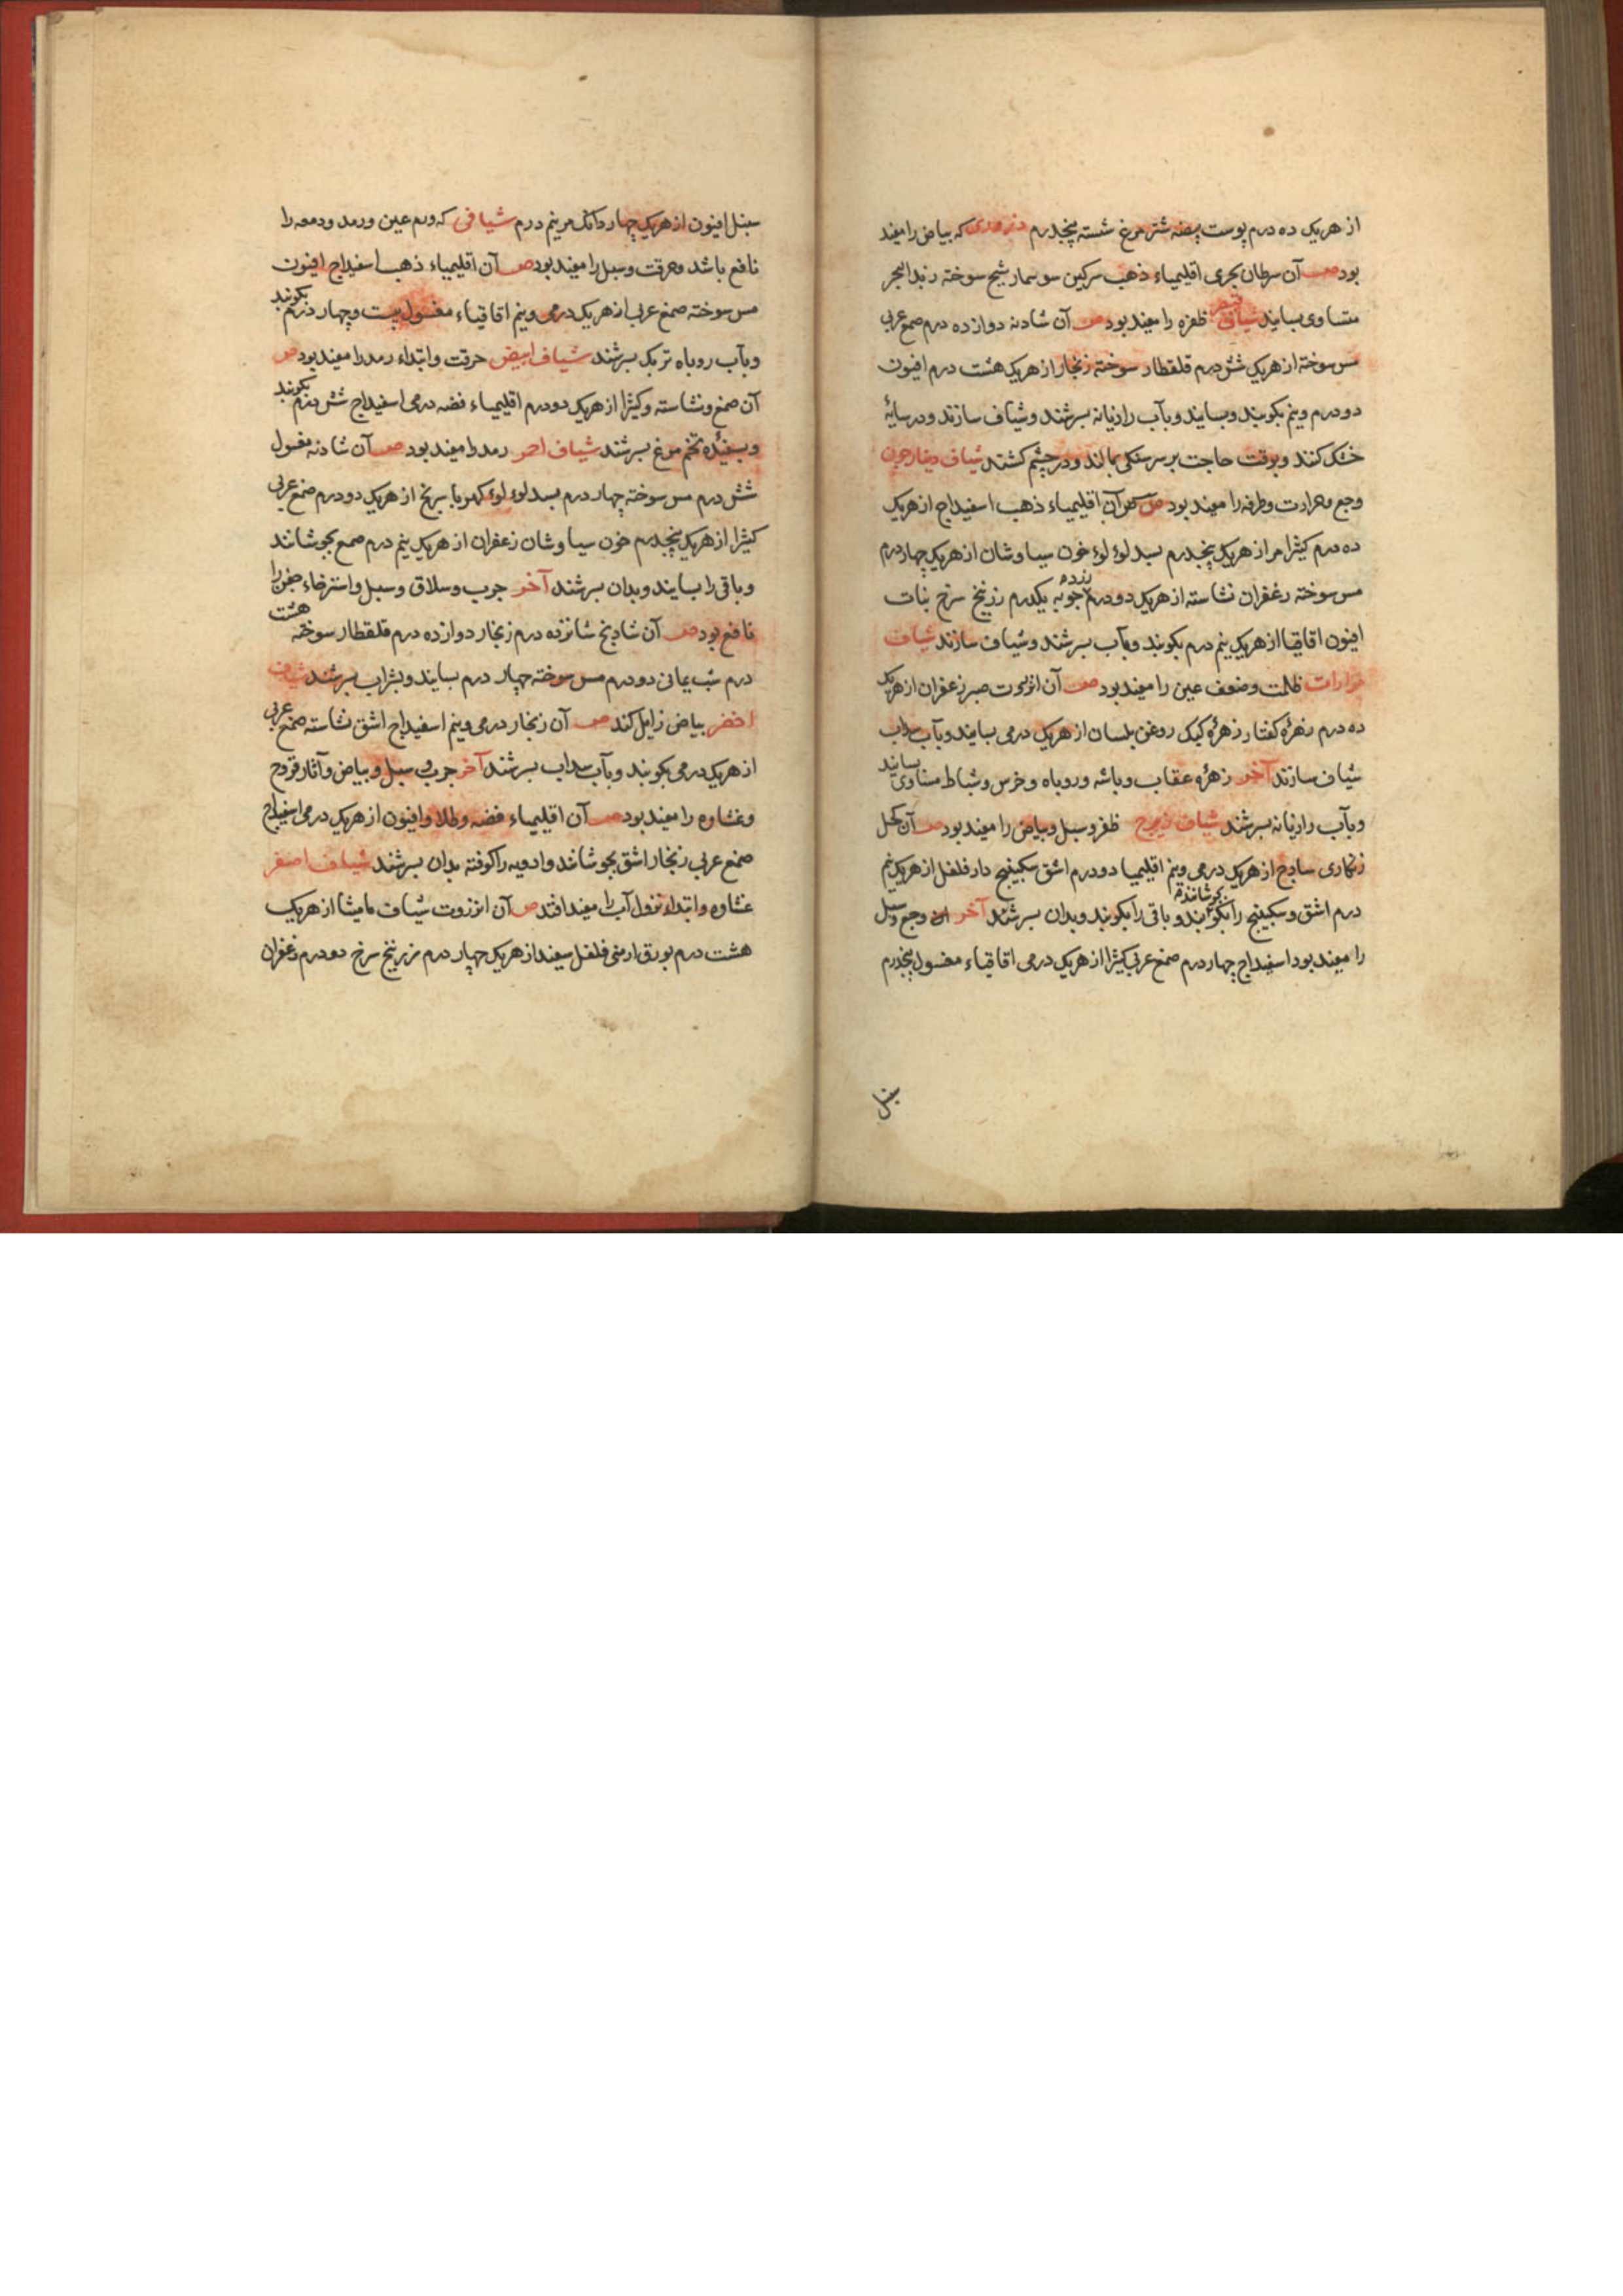 از هریک ده درم پوست بیضه شترمرغ شسته پنجدرم ذروری که بیاض را مفید
بود صف آن سرطان بحری اقلیمیاء ذهب سرکین سوسمار شیح سوخته زبد البحر
متساوی بسایند شیاف قیصر ظفره را مفید بود صف آن شادنه دوازده درم صمغ عربی
مس سوخته از هریک شش درم قلقطار سوخته زنجار از هریک هشت درم افیون
دو درم ونیم بکوبند وبسایند وبآب رازیانه بسرشند وشیاف سازند ودر سایهٔ
خشک کنند وبوقت حاجت بر سر سنکی بمالند ودر چشم کشند شیاف
وجع وحرارت وطرفه را مفید بود ص آن اقلیمیاء ذهب اسفیداج از هریک
ده درم کثیرا مر از هریک پنجدرم بسد لوء لوء خون سیاوشان از هریک چهار درم
مس سوخته زعفران نشاسته از هریک دو درم یکدرم زرنیخ سرخ نبات
افیون اقاقیا از هریک نیم درم بکوبند وبآب بسرشند وشیاف سازند شیاف
مرارات ظلمت وضعف عین را مفید بود صف آن انزروت صبر زعفران از هریک
ده درم زهرهٔ کفتار زهرهٔ کبک روغن بلسان از هریک درمی بسایند وبآب سداب
شیاف سازند آخر زهره عقاب وباشه وروباه وخرس وشباط متساوی بسایند
وبآب رازیانه بسرشند شیاف ظفر وسبل وبیاض را مفید بود صف آن کحل
زنکاری ساذج از هریک درمی ونیم اقلیمیا دو درم اشق سکبینج دارفلفل از هریک نیم
درم اشق وسکبینج را بجوشانند وباقی را بکوبند وبدان بسرشند آخر وجع وسبل
را مفید بود اسفیداج چهار درم صمغ عربی کثیرا از هریک درمی اقاقیاء مغسول پنجدرم
سنبل
سنبل افیون از هریک چهار دانک مر نیم درم شیافی که ورم عین ورمد ودمعه را
نافع باشد وحرقت وسبل را مفید بود صف آن اقلیمیاء ذهب اسفیداج افیون
مس سوخته صمغ عربی از هریک درمی ونیم اقاقیاء مغسول بیست وچهار درم بکوبند
وبآب روباه تربک بسرشند شیاف ابیض حرقت وابتداء رمد را مفید بود ص
آن صمغ ونشاسته وکثیرا از هریک دو درم اقلیمیاء فضه درمی اسفیداج شش درم بکوبند
وبسفیده تخم مرغ بسرشند شیاف احمر رمد را مفید بود صف آن شادنه مغسول
شش درم مس سوخته چهار درم بسد لوء لوء کهربا سرنج از هریک دو درم صمغ عربی
کثیرا از هریک پنجدرم خون سیاوشان زعفران از هریک نیم درم صمغ بجوشانند
وباقی را بسایند وبدان بسرشند آخر جرب وسلاق وسبل واسترخاء جفن را
نافع بود صف آن شادنج شانزده درم زنجار دوازده درم قلقطار سوخته هشت
درم شب یمانی دو درم مس سوخته چهار درم بسایند وبشراب بسرشند شیاف
اخضر بیاض زایل کند صف آن زنجار درمی ونیم اسفیداج اشق نشاسته صمغ عربی
از هریک درمی بکوبند وبآب سداب بسرشند آخر جرب وسبل وبیاض وآثار قروح
وغشاوه را مفید بود صف آن اقلیمیاء فضه وطلا وافیون از هریک درمی اسفیداج
صمغ عربی زنجار اشق بجوشانند وادویه را کوفته بدان بسرشند شیاف اصفر
غشاوه وابتداء نزول آب را مفید افتد ص آن انزروت شیاف مامیثا از هریک
هشت درم بورق ارمنی فلفل سفید از هریک چهار درم زرنیخ سرخ دو درم زعفران